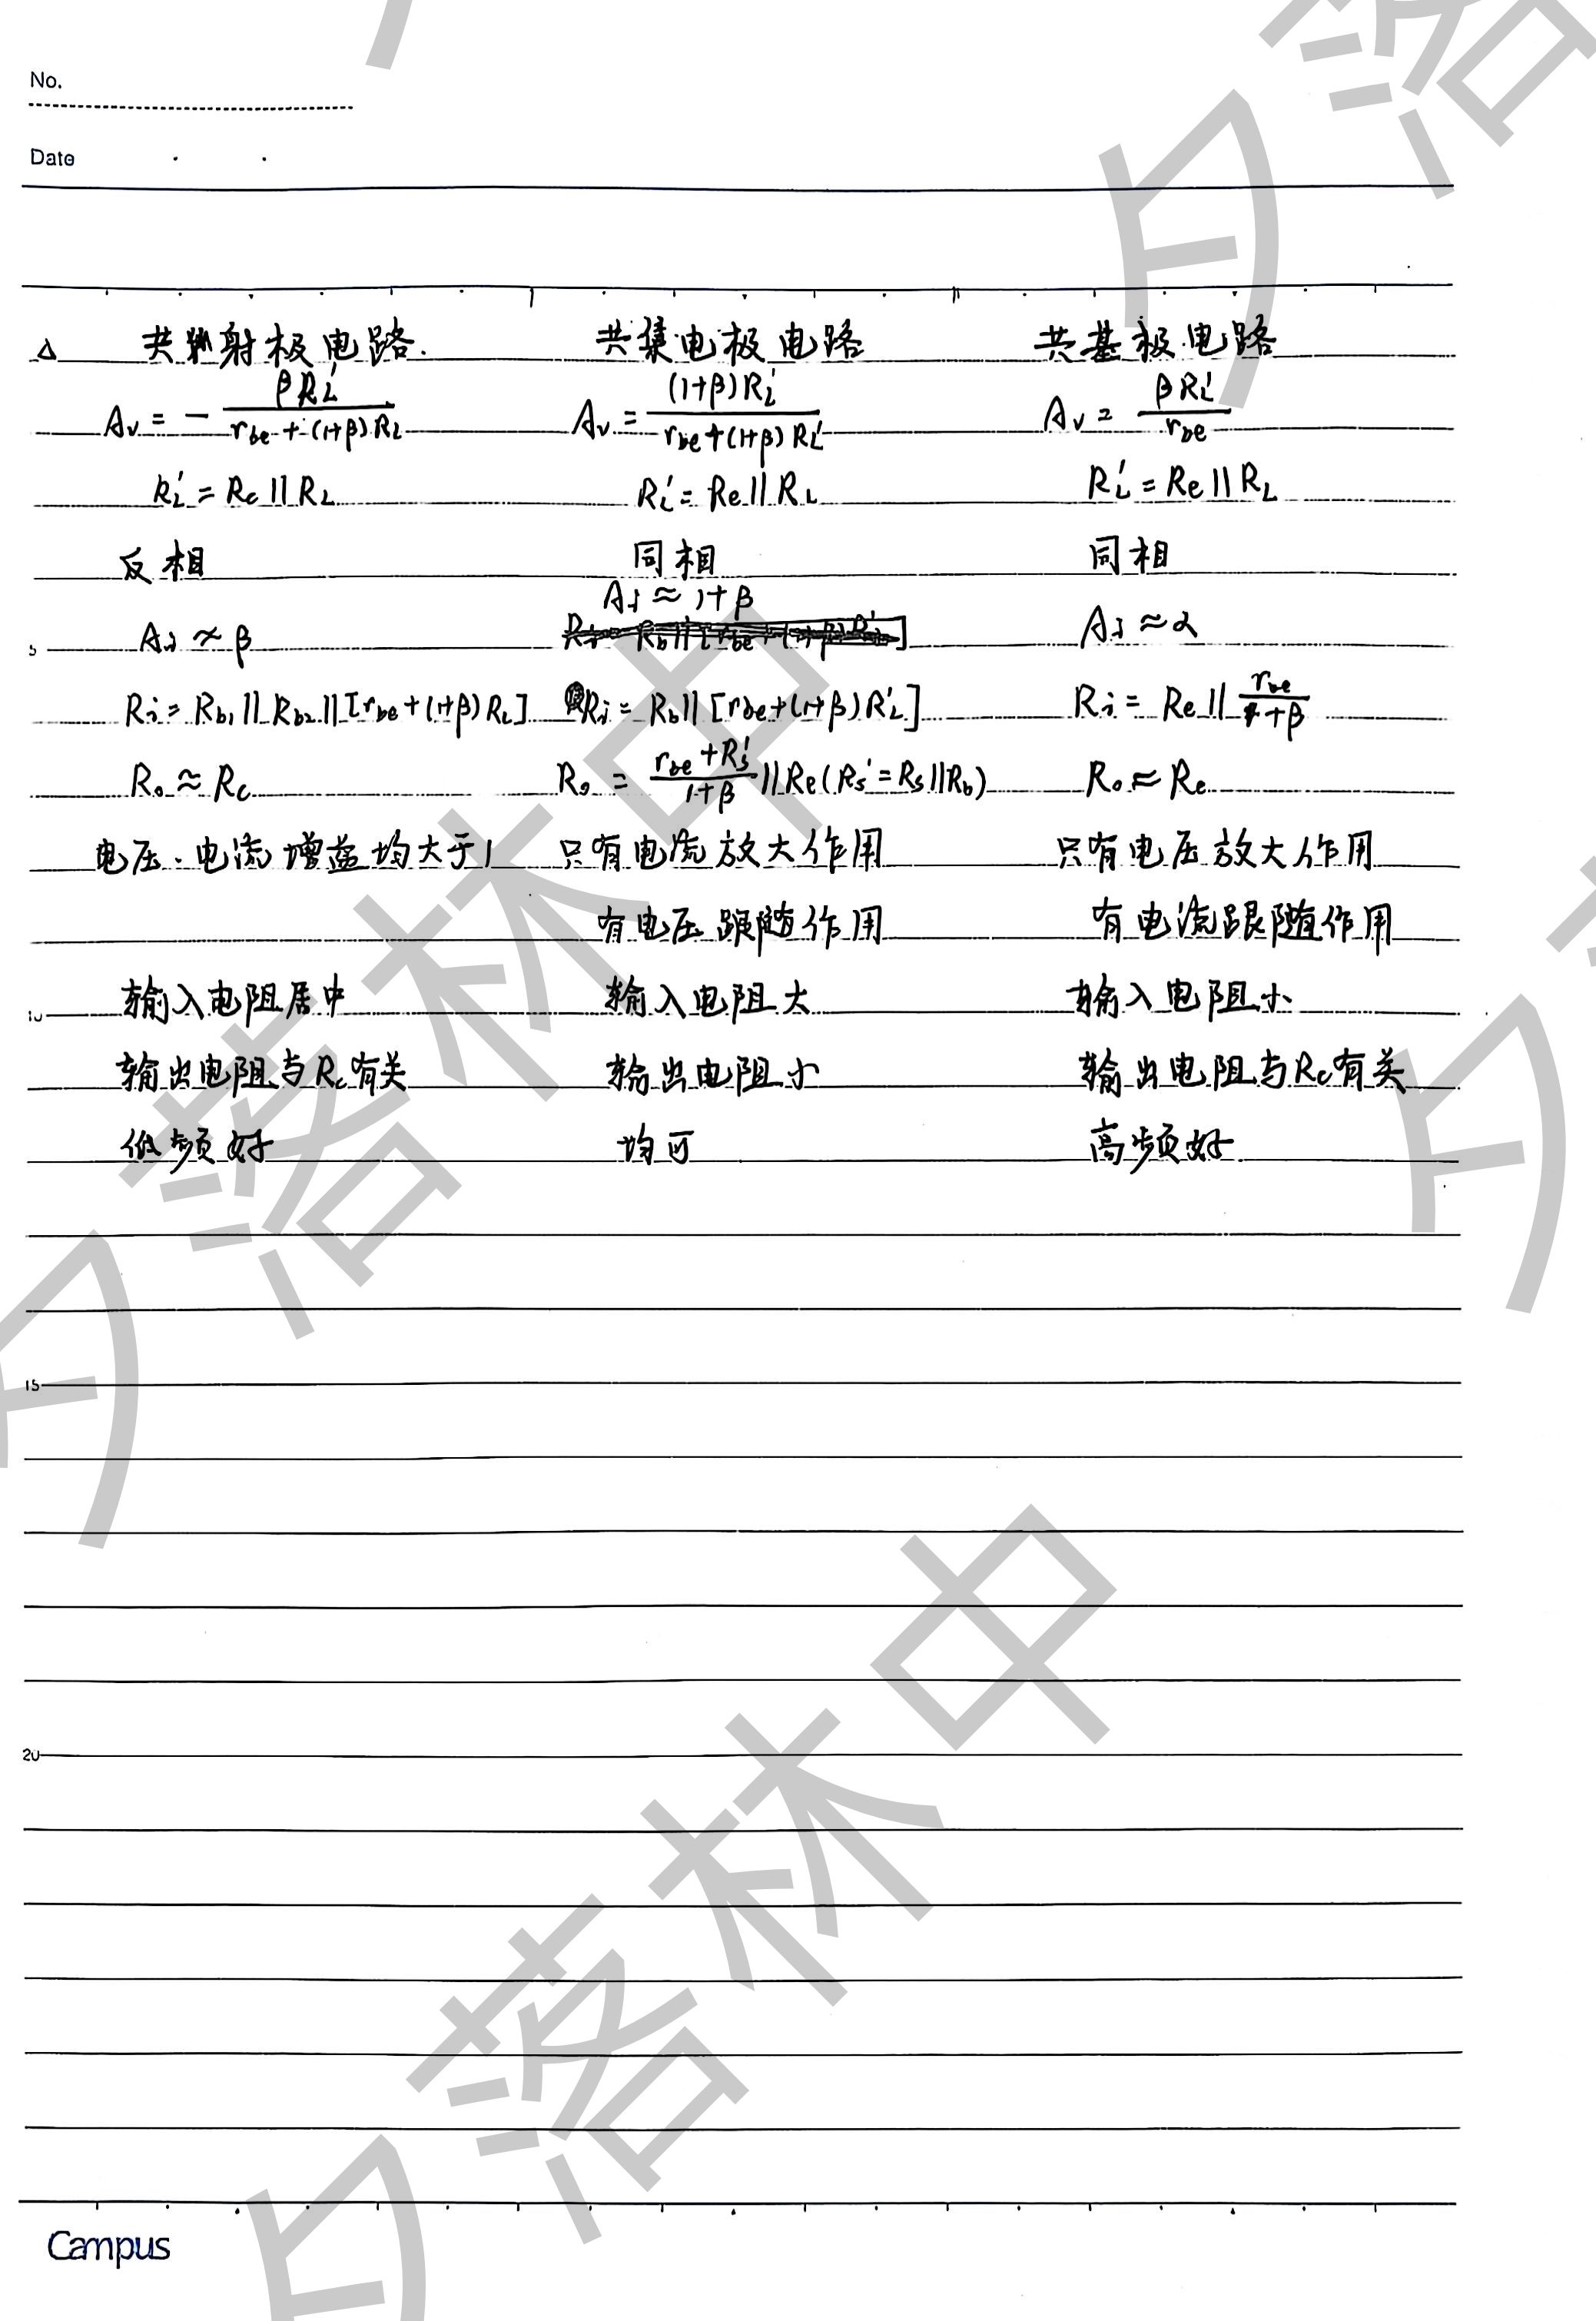 No.
Date
△ 共射极电路. 共集电极电路 共基极电路
Av = - βRL' / rbe + (1+β)RL Av = (1+β)RL' / rbe + (1+β)RL' Av = βRL' / rbe
RL' = Rc || RL RL' = Re || RL RL' = Re || RL
反相 同相 同相
Ai ≈ 1+β
5 Ai ≈ β Ai ≈ α
Ri = Rb1 || Rb2 || [rbe + (1+β)RL] Ri = Rb || [rbe + (1+β)RL'] Ri = Re || rbe / 1+β
Ro ≈ Rc Ro = rbe + Rs' / 1+β || Re (Rs' = Rs || Rb) Ro ≈ Rc
电压.电流增益均大于1 只有电流放大作用 只有电压放大作用
有电压跟随作用 有电流跟随作用
10 输入电阻居中 输入电阻大 输入电阻小
输出电阻与Rc有关 输出电阻小 输出电阻与Rc有关
低频好 均可 高频好
15
20
Campus
夕落林中
夕落林中
夕落
夕